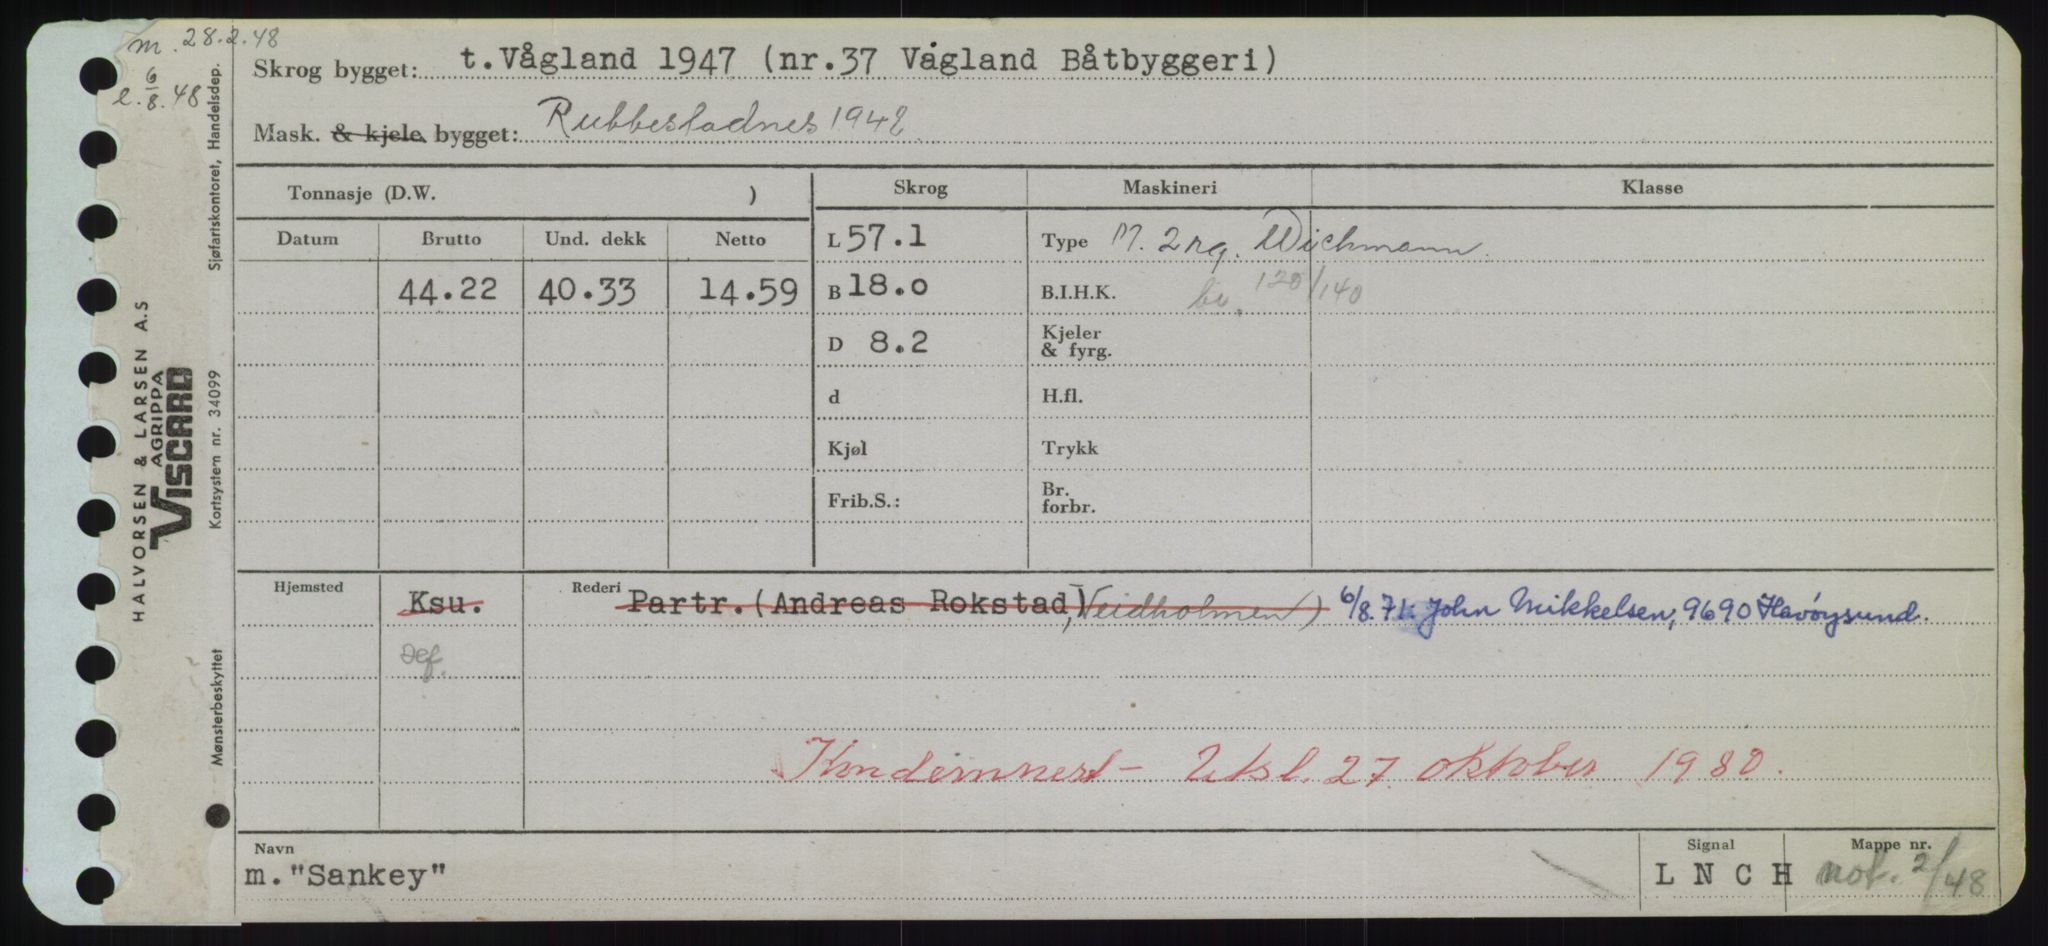 m. 28.2.48
e. 6/8.48
Skrog bygget: t.Vågland 1947 (nr.37 Vågland Båtbyggeri)
Mask. & kjele bygget: Rubbestadnes 1942
Tonnasje (D.W. )
Skrog Maskineri Klasse
Datum Brutto Und. dekk Netto
44.22 40.33 14.59
L 57.1
B 18.0
D 8.2
d
Kjøl
Frib.S.:
Type M. 2 Wichmann
B.I.H.K. 120/140
Kjeler
& fyrg.
H.fl.
Trykk
Br.
forbr.
Hjemsted Ksu. Rederi Partr.(Andreas Rokstad, Veidholmen) 6/8.71: John Mikkelsen, 9690 Havöysund.
Kondemnert - Utsl. 27. oktober 1980.
Navn
m."Sankey"
Signal
L N C H
Mappe nr.
not. 2/48
HALVORSEN & LARSEN A.S
AGRIPPA
VISCARD
Sjøfartskontoret, Handelsdep.
Kortsystem nr. 34099
Mønsterbeskyttet